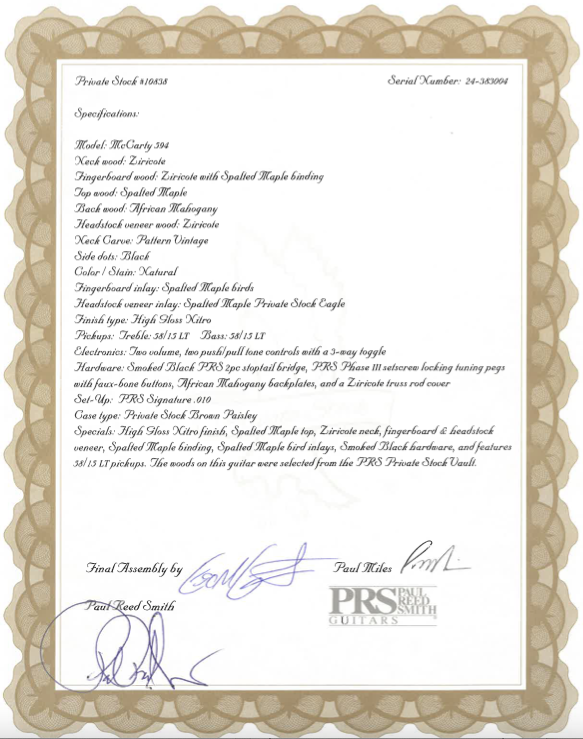 Private Stock #10838 Serial Number: 24-383004
Specifications:
Model: McCarty 594
Neck wood: Ziricote
Fingerboard wood: Ziricote with Spalted Maple binding
Top wood: Spalted Maple
Back wood: African Mahogany
Headstock veneer wood: Ziricote
Neck Carve: Pattern Vintage
Side dots: Black
Color / Stain: Natural
Fingerboard inlay: Spalted Maple birds
Headstock veneer inlay: Spalted Maple Private Stock Eagle
Finish type: High Gloss Nitro
Pickups: Treble: 58/15 LT Bass: 58/15 LT
Electronics: Two volume, two push/pull tone controls with a 3-way toggle
Hardware: Smoked Black PRS 2pc stoptail bridge, PRS Phase III setscrew locking tuning pegs
with faux-bone buttons, African Mahogany backplates, and a Ziricote truss rod cover
Set-Up: PRS Signature .010
Case type: Private Stock Brown Paisley
Specials: High Gloss Nitro finish, Spalted Maple top, Ziricote neck, fingerboard & headstock
veneer, Spalted Maple binding, Spalted Maple bird inlays, Smoked Black hardware, and features
58/15 LT pickups. The woods on this guitar were selected from the PRS Private Stock Vault.
Final Assembly by
Paul Miles
Paul Reed Smith
PRS PAUL REED SMITH
GUITARS